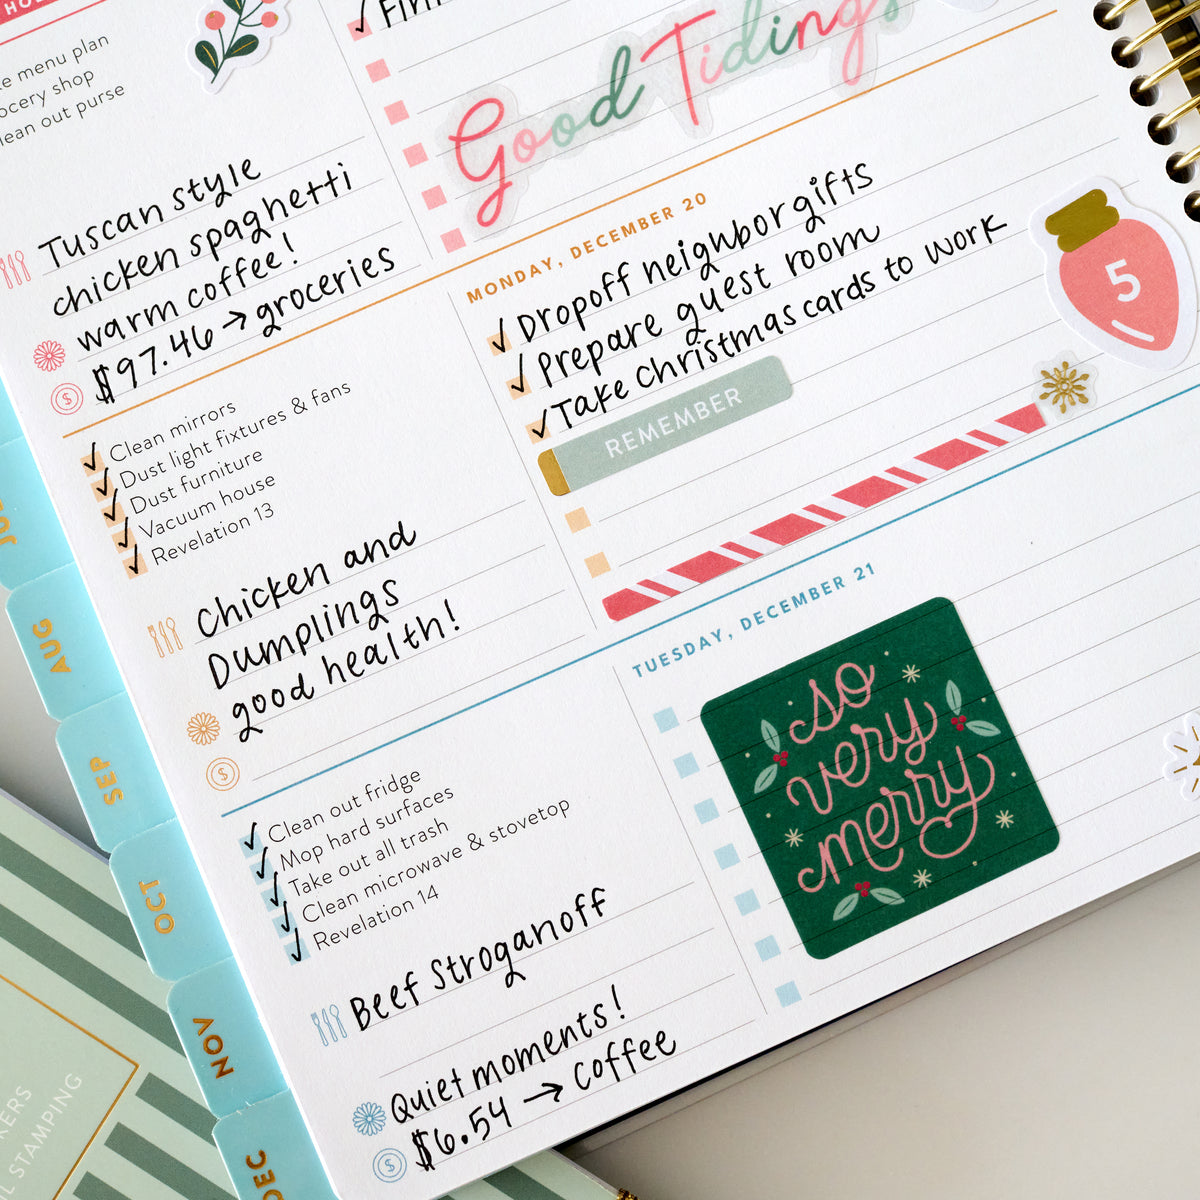 menu plan
shop
clean out purse
Tuscan style
chicken spaghetti
warm coffee!
$97.46 → groceries
Good Tidings
MONDAY, DECEMBER 20
✓ Dropoff neighbor gifts
✓ Prepare guest room
✓ Take christmas cards to work
REMEMBER
5
✓ Clean mirrors
✓ Dust light fixtures & fans
✓ Dust furniture
✓ Vacuum house
✓ Revelation 13
Chicken and
Dumplings
good health!
$
TUESDAY, DECEMBER 21
so
very
merry
✓ Clean out fridge
✓ Mop hard surfaces
✓ Take out all trash
✓ Clean microwave & stovetop
✓ Revelation 14
Beef Stroganoff
Quiet moments!
$6.54 → Coffee
AUG
SEP
OCT
NOV
DEC
STAMPING